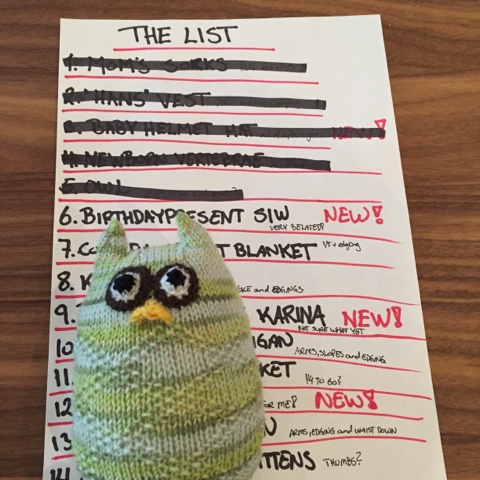 THE LIST
1. MOM'S SOCKS
2. "HANS" VEST
3. BABY HELMET HAT NEW!
4. NEWBORN VERTEBRAE
5. OWL
6. BIRTHDAYPRESENT SIW VERY BELATED! NEW!
7. BLANKET 1/5 + edging
8. and EDGINGS
9. KARINA NOT SURE WHAT YET NEW!
10 IGAN ARMS, SLOPES and EDGING
11. KET 1/4 TO GO?
12 FOR ME? NEW!
13 N ARMS, EDGING and WAIST DOWN
14 TTENS THUMBS?